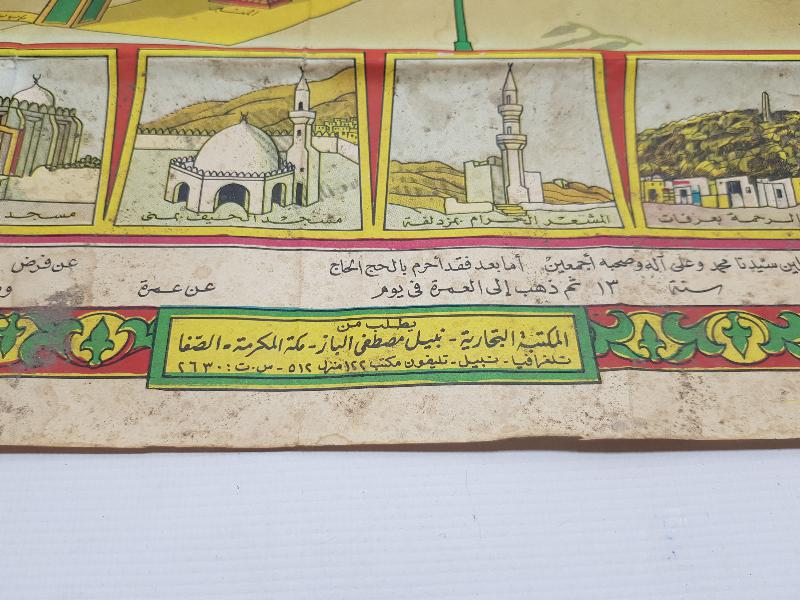 مسجد
مسجد الخيف بمنى
المشعر الحرام بمزدلفة
الرحمة بعرفات
سيدنا محمد وعلى آله وصحبه أجمعين أما بعد فقد أحرم بالحج الحاج
عن فرض
سنة ١٣ ثم ذهب إلى العمرة في يوم
عن عمرة
يطلب من
المكتبة التجارية - نبيل مصطفى الباز - مكة المكرمة - الصفا
تلغرافيا - نبيل - تليفون مكتب ١٢٢ منزل ٥١٢ - س.ت: ٢٦٣٠